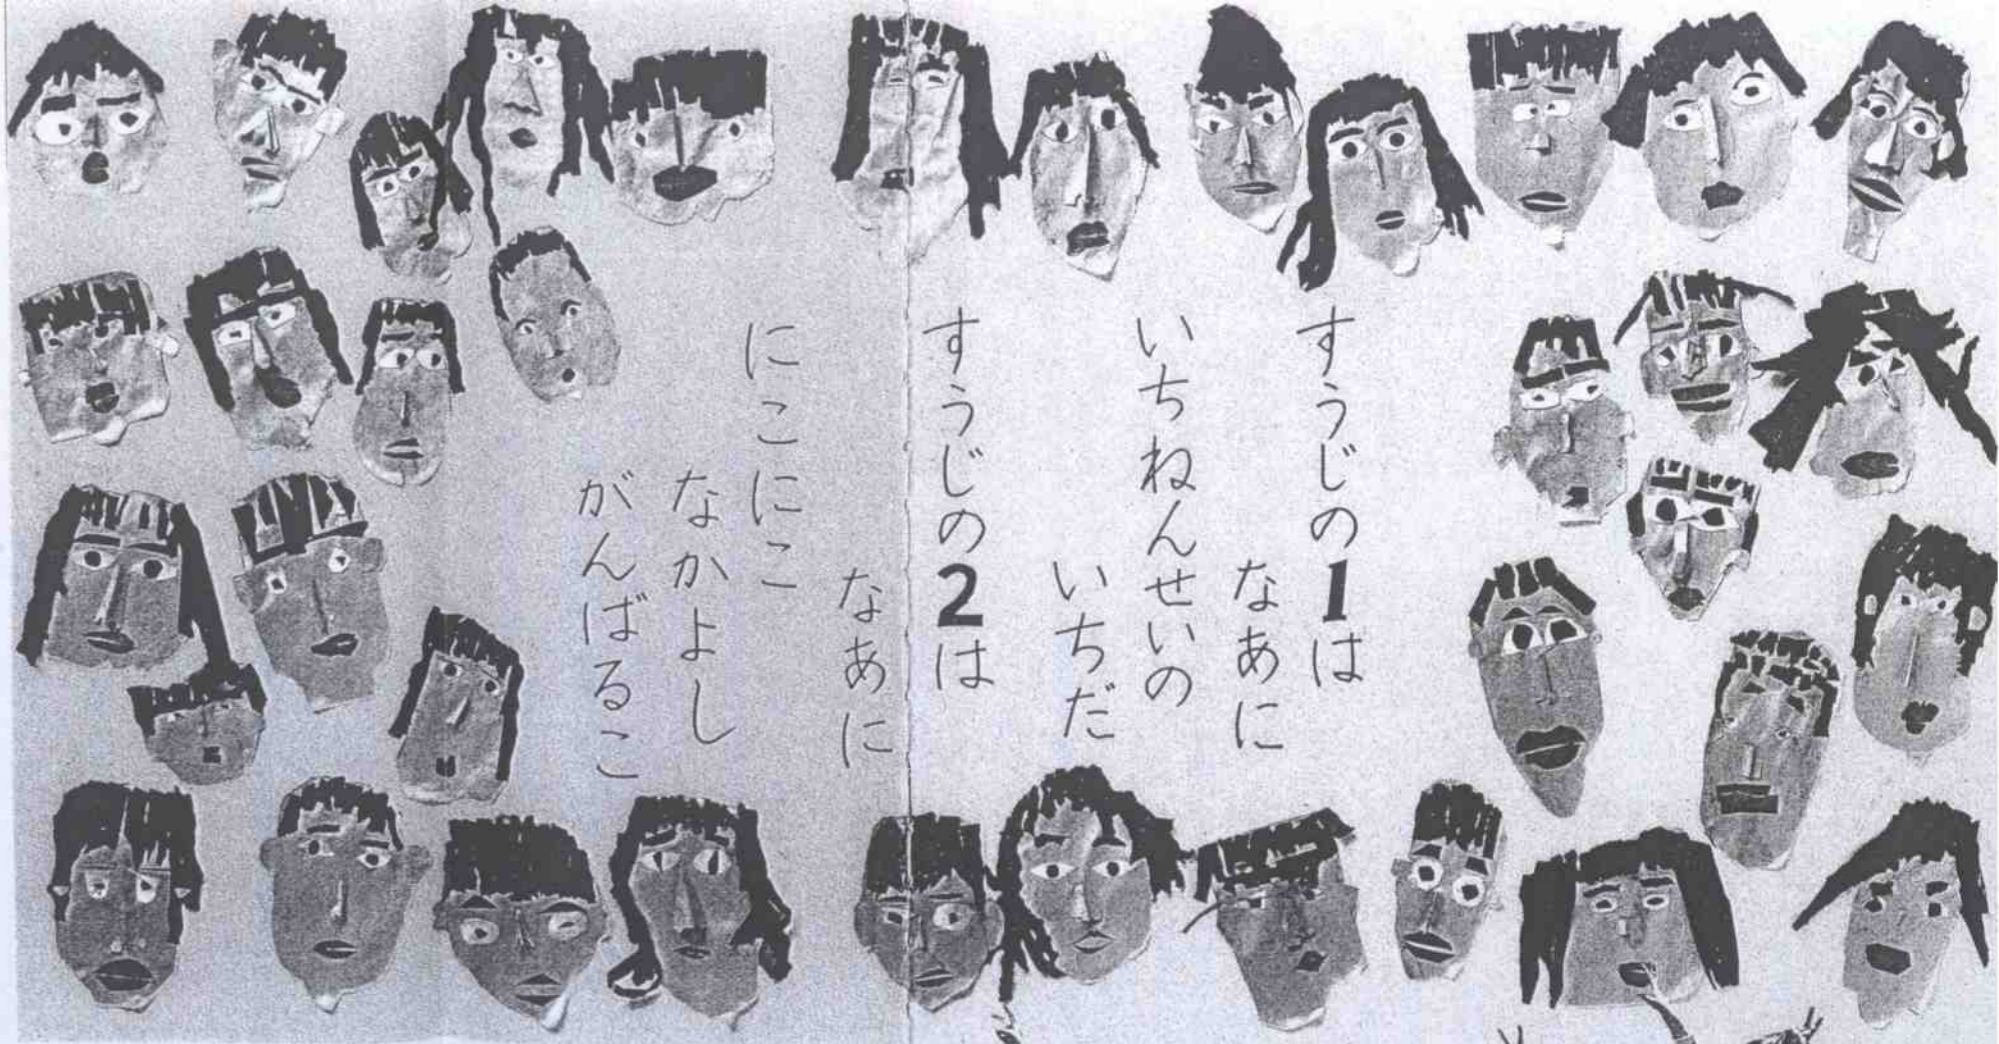 すうじの1は
なあに
いちねんせいの
いちだ
すうじの2は
なあに
にこにこ
なかよし
がんばるこ